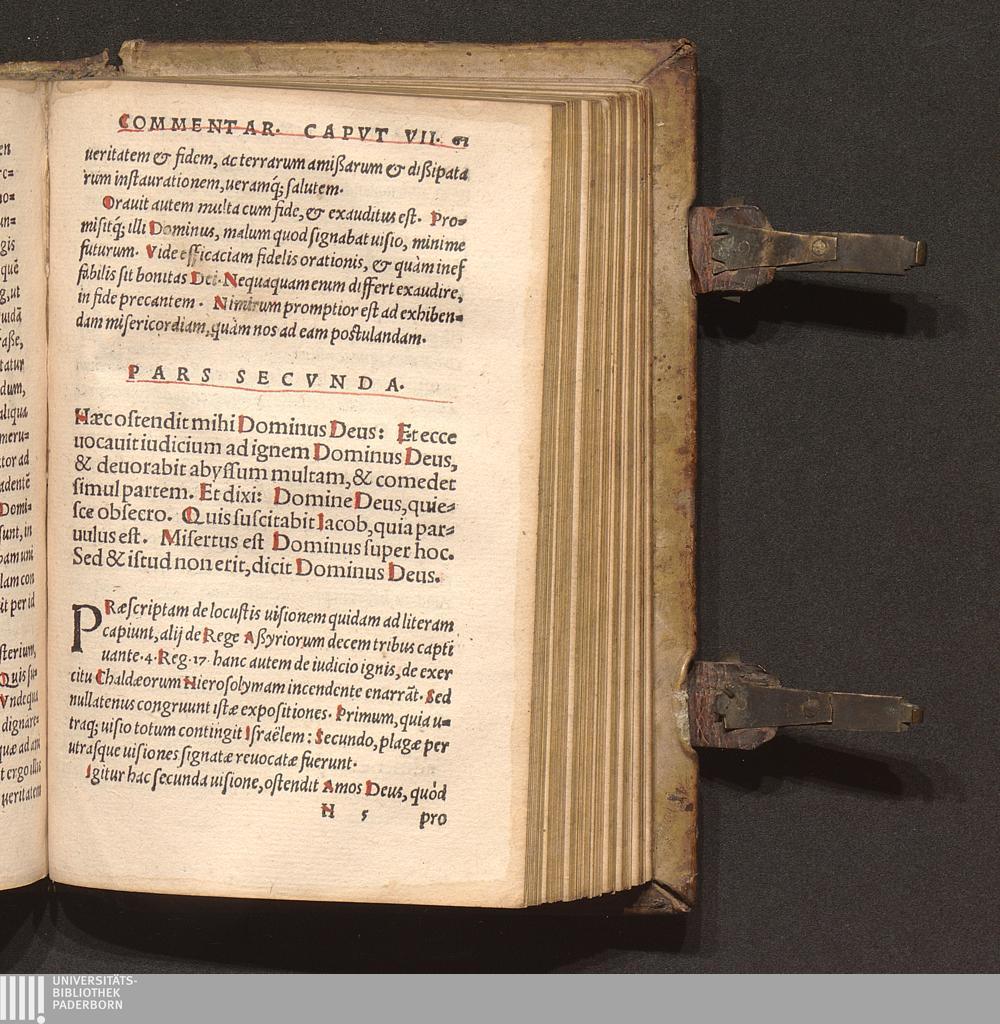 en
re=
no=
un=
gis
quē
g,ut
uidā
aße,
tatur
dum,
aliqua
meru=
tor ad
adentē
Domi=
sunt, in
bam uni
lam con
it per id
sterium,
Quis su-
Vnde qua
dignare=
quæ ad am
t ergo illis
ueritatem
COMMENTAR. CAPVT VII. 61
ueritatem & fidem, ac terrarum amißarum & dißipata
rum instaurationem, ueramq́; salutem.
Orauit autem multa cum fide, & exauditus est. Pro=
misitq́; illi Dominus, malum quod signabat uisio, minime
futurum. Vide efficaciam fidelis orationis, & quàm inef
fabilis sit bonitas Dei. Nequaquam enum differt exaudire,
in fide precantem. Nimirum promptior est ad exhiben=
dam misericordiam, quàm nos ad eam postulandam.
PARS SECVNDA.
Hæc ostendit mihi Dominus Deus: Et ecce
uocauit iudicium ad ignem Dominus Deus,
& deuorabit abyssum multam, & comedet
simul partem. Et dixi: Domine Deus, quie-
sce obsecro. Quis suscitabit Iacob, quia par-
uulus est. Misertus est Dominus super hoc.
Sed & istud non erit, dicit Dominus Deus.
PRæscriptam de locustis uisionem quidam ad literam
capiunt, alij de Rege Aßyriorum decem tribus capti
uante. 4. Reg. 17. hanc autem de iudicio ignis, de exer
citu Chaldæorum Hierosolymam incendente enarrāt. Sed
nullatenus congruunt istæ expositiones. Primum, quia u=
traq; uisio totum contingit Israëlem: Secundo, plagæ per
utrasque uisiones signatæ reuocatæ fuerunt.
Igitur hac secunda uisione, ostendit Amos Deus, quòd
H 5 pro
UNIVERSITÄTS-
BIBLIOTHEK
PADERBORN